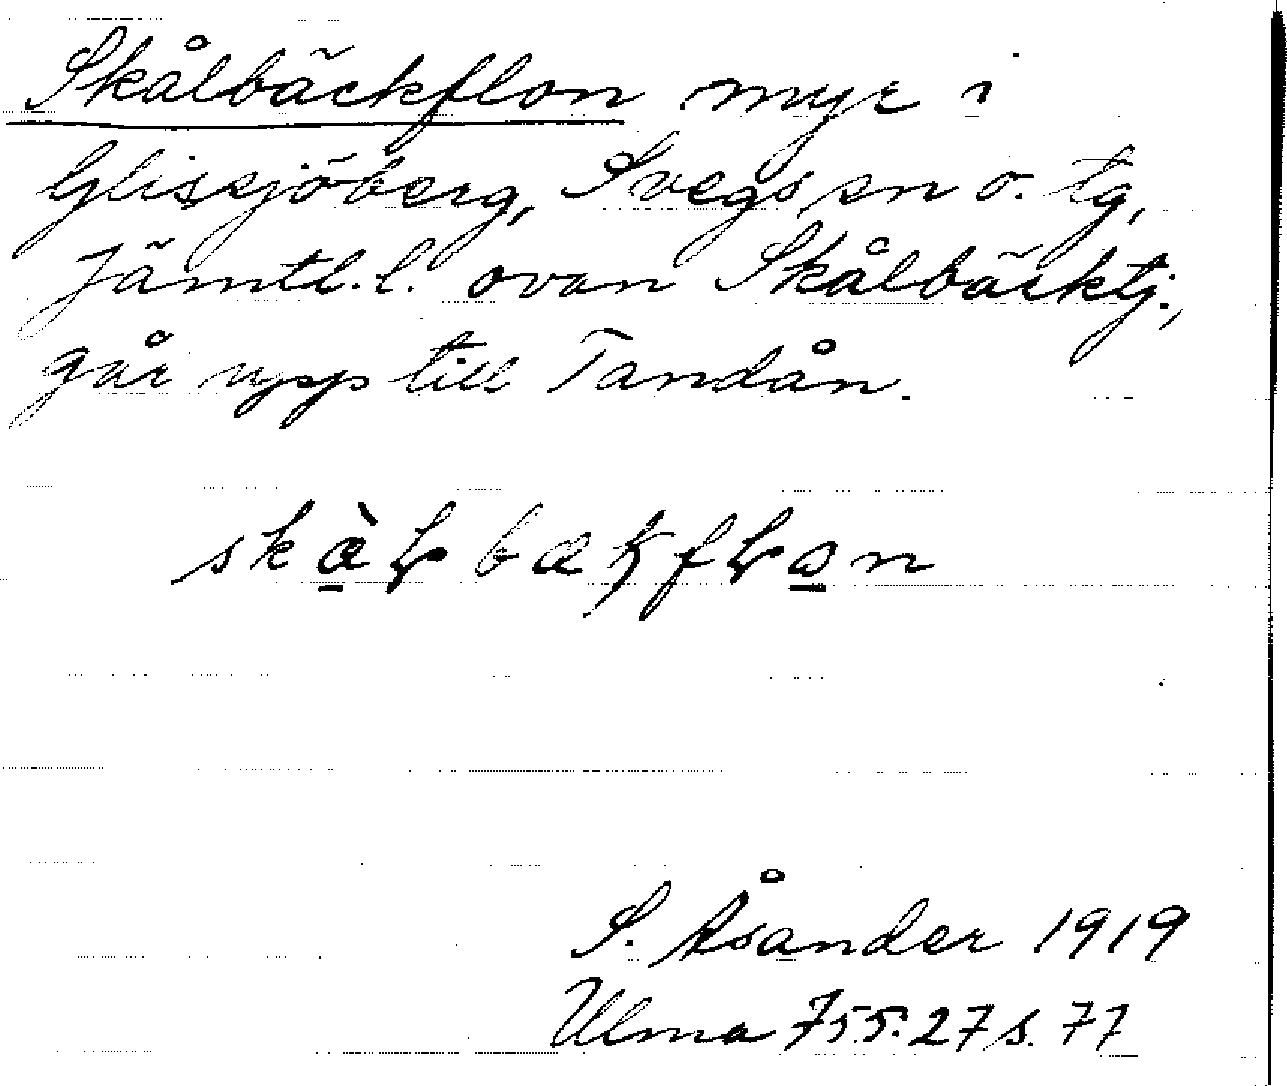 Skålbäckflon myr i
Glissjöberg, Svegs sn o. tg,
Jämtl.l. ovan Skålbäcktj.,
går upp till Tandån.
S. Åsander 1919
Ulma 755:27 s. 77